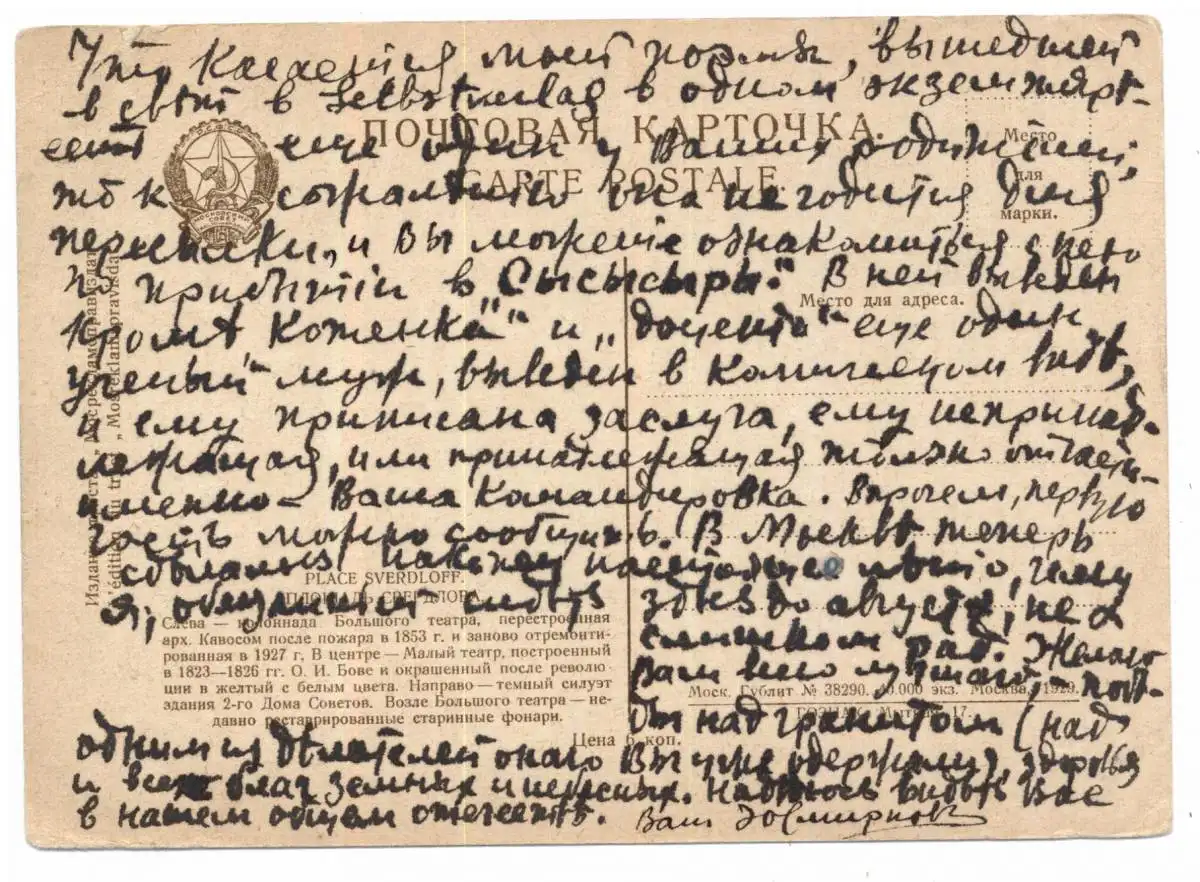 Что касается моей поэмы, вышедшей
в свѣт в Selbstverlag в одном экземпляре
есть еще один у Ваших родителей,
то к сожалѣнию она не годится для
пересылки, и Вы можете ознакомиться с нею
по прибытіи в „Сысысыры“. В ней выведен
кромѣ „Коженка“ и „доцента“ еще один
ученый муж, выведен в комическом видѣ,
и ему приписана заслуга, ему непринад-
лежащая, или принадлежащая только отчасти
именно – Ваша командировка. Впрочем, первую
часть можно сообщить. В Москвѣ теперь
наконец настоящее лѣто, чему
я, здѣсь до августа, не
слишком рад. Желаю
Вам всего лучшаго – побѣ-
ды над гранитом (над
одним из дѣятелей онаго Вы уже одержали), здоровья
и всех благ земных и небесных. Надѣюсь видѣть Вас
в нашем общем отечествѣ. Ваш Смирнов
ПОЧТОВАЯ КАРТОЧКА.
CARTE POSTALE.
Р.С.Ф.С.Р.
МОСКОВСКИЙ
СОВЕТ
Место
для
марки.
Место для адреса.
„Mosreklamopravizdat“
PLACE SVERDLOFF.
ПЛОЩАДЬ СВЕРДЛОВА.
Слева — колоннада Большого театра, перестроенная
арх. Кавосом после пожара в 1853 г. и заново отремонти-
рованная в 1927 г. В центре — Малый театр, построенный
в 1823—1826 гг. О. И. Бове и окрашенный после револю-
ции в желтый с белым цвета. Направо — темный силуэт
здания 2-го Дома Советов. Возле Большого театра — не-
давно реставрированные старинные фонари.
Цена 6 коп.
Моск. Гублит № 38290. 40.000 экз. Москва, 1929.
ГОЗНАК. Мытная, 17.